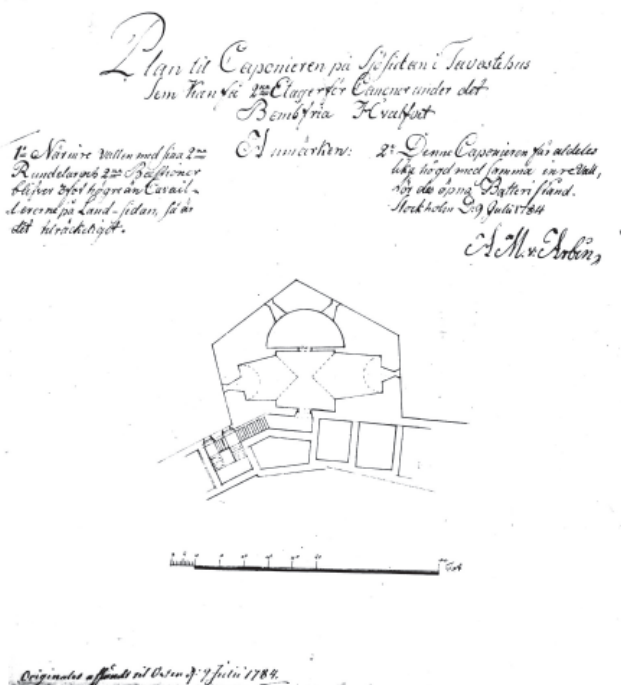 Plan til Caponieren på Sjösidan i Tavastehus
Som kan få 2ne Etager för Canoner under det
Bombfria Hvalfvet
Anmärken:
1o När inre Vallen med sina 2ne
Rundelar och 2ne Bastioner
blifver högre än Cavail-
lererne på Land-sidan, så är
det tilräckeligit.
2o Denne Caponieren får aldeles
lika högd med samma inre Vall,
des öpna Batteri stånd.
Stockholm D: 9 Julii 1784
A M. v: Arbin
Fot
Originalet afsändt til D: 9 Julii 1784.